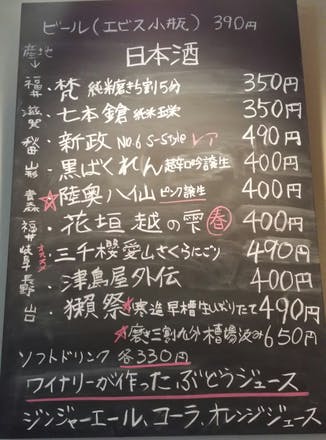 ビール(エビス小瓶) 390円
産地
↓
日本酒
福井・梵 純米磨き5分 350円
滋賀・七本鎗 純米玉栄 350円
秋田・新政 No.6 S-Style レア 490円
山形・黒ばくれん 超辛吟譲生 400円
青森☆陸奥八仙 ピンク譲生 400円
福井・花垣 越の雫 春 400円
岐阜 オススメ・三千櫻 愛山さくらにごり 490円
長野・津島屋外伝 400円
山口・獺祭☆寒造早槽生しぼりたて 490円
☆磨き三割九分槽場汲み 650円
ソフトドリンク 各330円
ワイナリーが作ったぶどうジュース
ジンジャーエール、コーラ、オレンジジュース